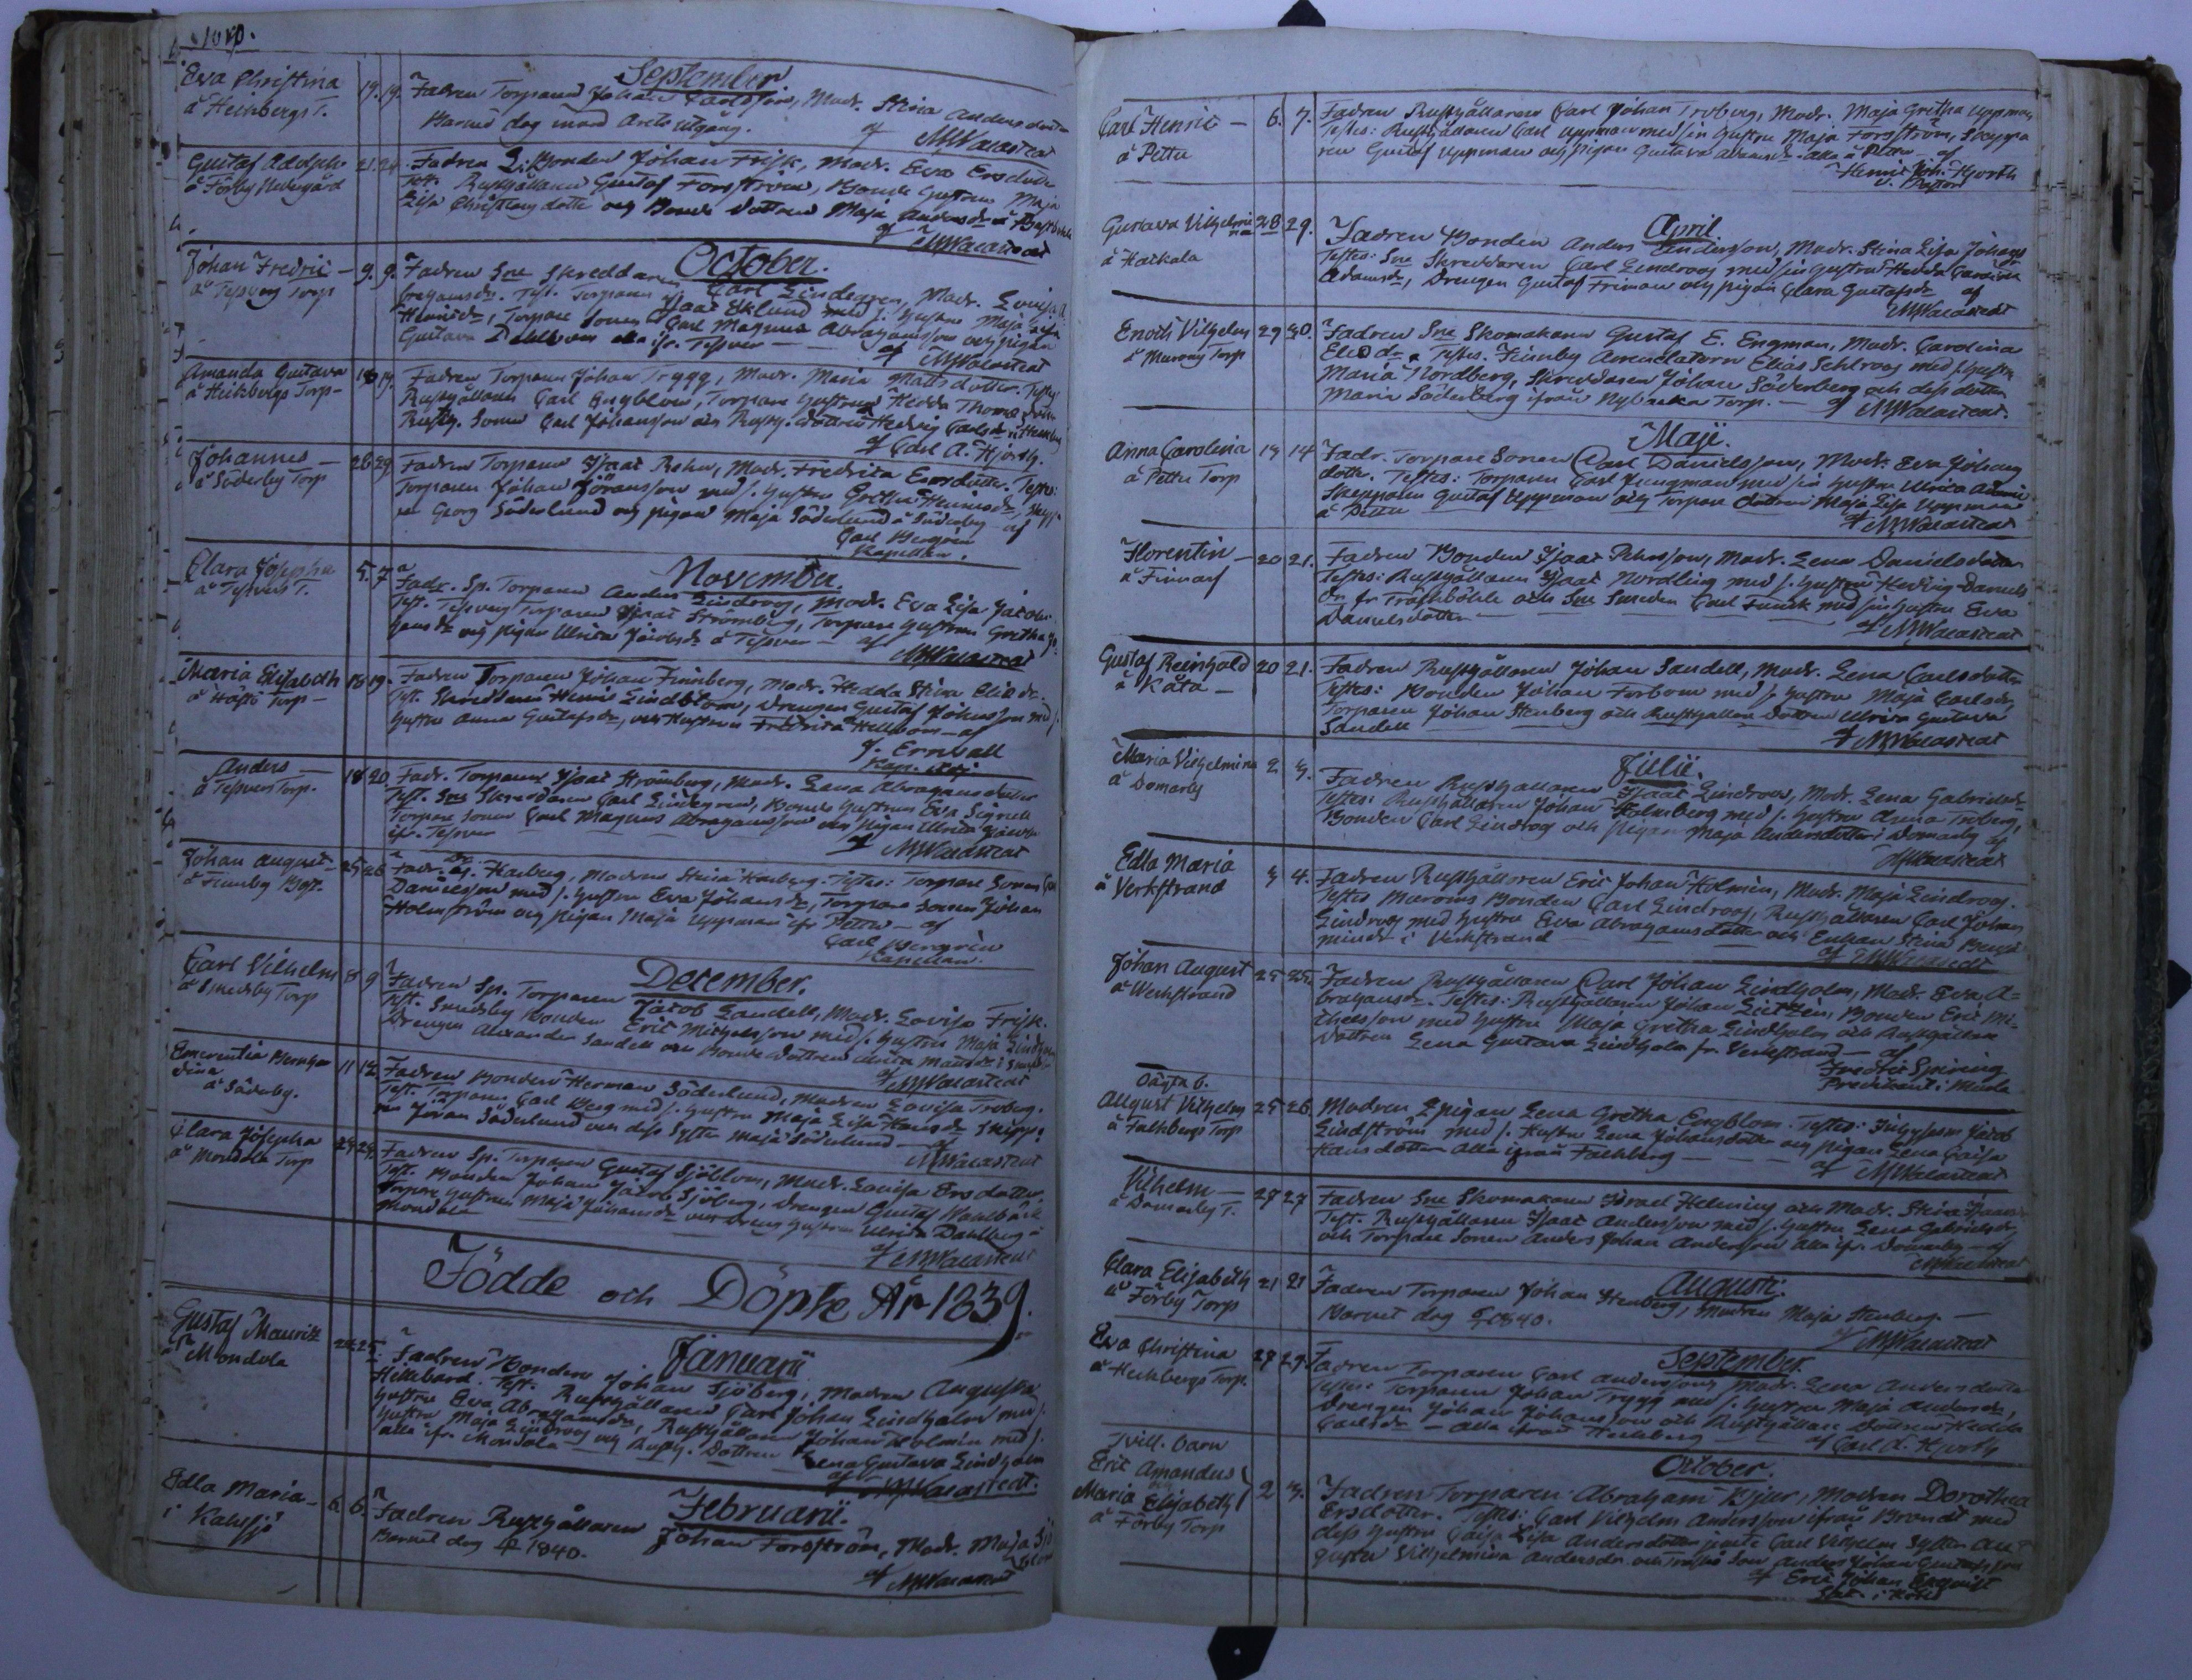 September
Eva Christina
å Heikbergs T.
19. 19. Fadren Torparen Johan Carlsson, Modr. Stina Andersdotter
Barnet dog inom årets utgång. af
MWacastedt
Gustaf Adolph
å Förby Nedergård
21. 24. Fadren Bonden Johan Frisk, Modr. Eva Ersdotter
Test. Rusthållaren Gustaf Forsström, Bonde hustrun Maja
Lisa Christiansdotter och Bonde dottren Maja Andersdr å
af MWacastedt
October.
Johan Fredric —
å Tessvers Torp
9. 9. Fadren Sne Skreddaren Carl Lindegren, Modr. Lovisa A
brahamsdr. Test. Torparen Isaac Eklund med s. hustru Maja
Henricsdr, Torpare Sonen Carl Magnus Abrahamsson och pigan
Gustava Dahlbom alla ifr. Tessver — af MWacastedt
Amanda Gustava
å Heikbergs Torp —
18 19. Fadren Torparen Johan Trygg, Modr. Maria Mattsdotter. Testes
Rusthållaren Carl Engblom, Torpare hustrun Hedda Thomsdotter
Rusth. Sonen Carl Johansson och Rusth. dottren Hedvig Carlsdr
af Carl A. Hjorth.
Johannes —
å Söderby Torp
28 29. Fadren Torparen Isaac Rehn, Modr. Fredrica Ersdotter. Testes:
Torparen Johan Jöransson med s. hustru Gretha Henricsdr, Skeppa
ren Georg Söderlund och pigan Maja Söderlund å Söderby — af
Carl Bergrén
Kapellan.
November.
Clara Josepha
å Tessvers T.
5. 7 Fadr. Sp. Torparen Anders Lindroos, Modr. Eva Lisa Jacobs
Test. Tessvers Torparen Isaac Strömberg, Torpare hustrun Gretha Jo
hansdr och pigan Ulrica Jacobsdr å Tessver — af
MWacastedt
Maria Elisabeth
å Håstö Torp —
18 19. Fadren Torparen Johan Finnberg, Modr. Hedda Stina Eliaedr.
Test. Skreddaren Henric Lindblom, Drengen Gustaf Johnsson med s.
hustru Anna Gustafsdr, och Hustrun Fredrica Hellbom — af
J. Ernvall
Kap. Adj.
Anders —
å Tessvers Torp.
18 20. Fadr. Torparen Isaac Strömberg, Modr. Lena Abrahamsdotter
Test. Sne Skreddaren Carl Lindegren, Bonde hustrun Eva Signell
Torpare Sonen Carl Magnus Abrahamsson och pigan Ulrica Jacobs
ifr. Tessver af MWacastedt
Johan August
å Finnby Bost.
25 26 Fadr. Karberg, Modren Stina Karberg. Testes: Torpare Sonen Carl
Danielsson med s. hustru Eva Johansdr, Torpare Sonen Johan
Holmström och pigan Maja Uppman ifr. Pettu — af
Carl Bergrén
Kapellan.
December.
Carl Vilhelm
å Smedsby Torp
8 9 Fadren Sp. Torparen Jacob Sandell, Modr. Lovisa Frisk.
Test. Smedsby Bonden Eric Michelsson med s. hustru Maja
Drengen Alexander Sandell och Bonde dottren Ulrica
af MWacastedt
Emerentia Bernhar
dina
å Söderby.
11 12. Fadren Bonden Herman Söderlund, Modren Lovisa Troberg.
Test. Torparen Carl Berg med s. hustru Maja Lisa Hansdr Skepp.
ren Johan Söderlund och dess Syster Maja Söderlund — af
MWacastedt
Clara Josepha
å Mondola Torp
24 24. Fadren Sp. Torparen Gustaf Sjöblom, Modr. Lovisa Ersdotter.
Test. Bonden Johan Jacob Sjöberg, Drengen Gustaf Wahlbäck
Torpare hustrun Maja Johansdr och hustrun Ulrica Dahlberg i
Mondola af MWacastedt
Födde och Döpte År 1839.
Januarii
Gustaf Mauritz
å Mondola
24. 25. Fadren Bonden Johan Sjöberg, Modren Augusta
Hillebard. Test. Rusthållaren Carl Johan Lindholm med s.
hustru Eva Abrahamsdr, Rusthållaren Johan Holmén med s.
hustru Maja Lindroos och Rusth. Dottren Lena Gustava Lindholm
alla ifr. Mondola af MWacastedt.
Februarii.
Edla Maria —
i Kahssjö
6. 6. Fadren Rusthållaren Johan Forsström, Modr. Maja Sjö
Barnet dog 1840. blom
af MWacastedt
Carl Henric —
å Pettu
6. 7. Fadren Rusthållaren Carl Johan Troberg, Modr. Maja Gretha Uppman,
Testes: Rusthållaren Carl Uppman med sin hustru Maja Forsström, Skeppa
ren Gustaf Uppman och Pigan Gustava Adamsdr. alla å Pettu af
Henric Joh. Hjorth
V. Pastor
April
Gustava Vilhelmi
na
å Haikala
28 29. Fadren Bonden Anders Andersson, Modr. Stina Lisa Johans
Testes: Sne Skreddaren Carl Lindroos med sin hustru Hedda Carolina
Adamsdr, Drengen Gustaf Friman och pigan Clara Gustafsdr af
MWacastedt
Enoch Vilhelm
å Marony Torp
29 30. Fadren Sne Skomakaren Gustaf E. Engman, Modr. Carolina
Eliædr. Testes. Finnby Arrendatorn Elias Sehlroos med s. hustru
Maria Nordberg, Skreddaren Johan Söderberg och dess dotter
Maria Söderberg ifrån Nybacka Torp. — af MWacastedt.
Maji.
Anna Carolina
å Pettu Torp
13 14 Fadr. Torpare Sonen Carl Danielsson, Modr. Eva Johans
dotter. Testes: Torparen Carl Jungman med sin hustru Ulrica
Skepparen Gustaf Uppman och Torpare dottren Maja Lisa Uppman
å Pettu af MWacastedt
Florentin —
å Finnarf
20 21. Fadren Bonden Isaac Pehrsson, Modr. Lena Danielsdotter
Testes: Rusthållaren Isaac Nordling med s. hustru Hedvig Daniels
dr fr. Träskböhle och Sne Smeden Carl Funck med sin hustru Eva
Danielsdotter — af MWacastedt
Gustaf Reinhold
å Kåta —
20 21. Fadren Rusthållaren Johan Sandell, Modr. Lena Carlsdotter
Testes: Bonden Johan Forbom med s. hustru Maja Carlsdr,
Torparen Johan Stenberg och Rusthållare Dottren Ulrica Gustava
Sandell af MWacastedt
Julii.
Maria Vilhelmina
å Domarby
2. 3. Fadren Rusthållaren Isaac Lindroos, Modr. Lena Gabrielsdr
Testes: Rusthållaren Johan Holmberg med s. hustru Troberg,
Bonden Carl Lindroos och pigan Maja Andersdotter i Domarby af
MWacastedt
Edla Maria
å Verkstrand
3 4. Fadren Rusthållaren Eric Johan Holmén, Modr. Maja Lindroos.
Testes Bonden Carl Lindroos, Rusthållaren Carl Johan
Lindroos med hustru Eva Abrahamsdotter och Enkan Stina Benja
minsdr i Verkstrand — af MWacastedt
Johan August
å Werkstrand
25 25. Fadren Rusthållaren Carl Johan Lindholm, Modr. Eva A=
brahamsdr. Testes: Rusthållaren Johan, Bonden Eric Mi=
chelsson med hustru Maja Gretha Lindholm och Rusthållare
Dottren Lena Gustava Lindholm fr. Verkstrand — af
Fredric Spiring
Predikant i Muurla
Oägta b.
August Vilhelm
å Falkbergs Torp
25 26. Modren pigan Lena Gretha Engblom. Testes: Inhysesm Jacob
Lindström med s. Hustru Lena Johansdotter och pigan Lena Caisa
Hansdotter alla ifrån Falkberg — af MWacastedt
Vilhelm —
å Domarby T.
27 27 Fadren Sne Skomakaren Israel Helming och Modr. Stina Isaacsdr
Test. Rusthållaren Isaac Andersson med s. hustru Lena Gabrielsdr
och Torpare Sonen Anders Johan Andersson alla ifr. Domarby — af
MWacastedt
Augusti.
Clara Elisabeth
å Förby Torp
21 21 Fadren Torparen Johan Stenberg, Modren Maja Stenberg. —
Barnet dog 1840.
af MWacastedt
September.
Eva Christina
å Heikbergs Torp.
27 29. Fadren Torparen Carl Andersson, Modr. Lena Andersdotter
Testes: Torparen Johan Trygg med s. hustru Maja Andersdr,
Drengen Johan Johansson och Rusthållare Dottren Hedda
Carlsdr — alla ifrån Heikberg — af Carl A. Hjorth
October.
Tvill. Barn
Eric Amandus
och
Maria Elisabeth
å Förby Torp
2 3. Fadren Torparen Abraham Bjur, Modren Dorothea
Ersdotter. Testes: Carl Vilhelm Andersson ifrån Brandt med
dess hustru Caisa Lisa Andersdotter jemte Carl Vilhelm Syster Au=
gusta Vilhelmina Andersdr och Son Anders Johan Gustafsson
af Eric Johan